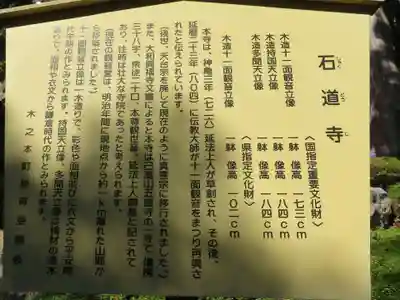 石道寺
〈国指定重要文化財〉
木造十一面観音立像 一躰 像高 一七三cm
〈県指定文化財〉
木造持国天立像 一躰 像高 一八四cm
木造多聞天立像 一躰 像高 一八四cm
木造十一面観音立像 一躰 像高 一〇二cm
本寺は、神亀三年(七二六)延法上人が草創され、その後、
延暦二十三年(八〇四)に伝教大師が十一面観音をまつり再鳴さ
れたと伝えられています。
(後世、天台宗を廃して現在のように真言宗に移行されました。)
また、大和興福寺文書によると本寺は己高山五箇寺の一寺で
三十八宇、衆徒二十口、本尊観世音、延法上人御作と記されて
あり、往時は壮大な寺院であったと考えられます。
(現在の観音堂は、明治年間に現地点から約一km離れた山麓か
ら移築されました。)
十一面観音立像は一木造りで、彩色や面相並びに衣文から平安時
代中期の作とみられます。持国天立像、多聞天立像は檜材の寄木
造りで、面相や衣文から鎌倉時代の作とみられます。
木之本町教育委員会